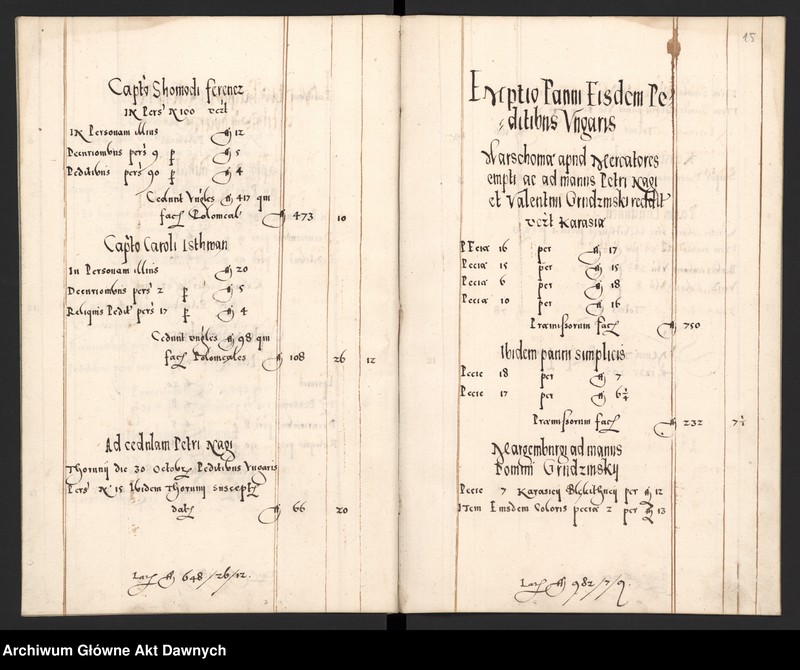 Capto Shomodi ferencz
IN Pers N 100 vczt
IN Personam illius ƒl 12
Decurionibus pers 9 p ƒl 5
Peditibus pers 90 p ƒl 4
Cedunt Vngles ƒl 417 qui
fac Polonical ƒl 473 10
Capto Caroli Isthwan
In Personam illius ƒl 20
Decurionibus pers 2 p ƒl 5
Reliquis Pedit pers 17 p ƒl 4
Cedunt vngles ƒl 98 qui
fac Polonicales ƒl 108 26 12
Ad cedulam Petri Nagi
Thorunij die 30 Octobr Peditibus Vngaris
Pers N 15 Ibidem Thorunij suscept
dat ƒl 66 20
Lat ƒl 648/26/12.
15
Emptio Panni Eisdem Pe
ditibus Vngaris
Warschoniae apud Mercatores
empti ac ad manus Petri Nagi
et Valentini Grudzinski reddit
vczt Karasia
PEciae 16 per ƒl 17
Peciae 15 per ƒl 15
Peciae 6 per ƒl 18
Peciae 10 per ƒl 16
Praemissorum fac ƒl 750
Ibidem panni simplicis
Pecie 18 per ƒl 7
Pecie 17 per ƒl 6
Praemissorum fac ƒl 232 7½
Margemburgi ad manus
Domini Grudzinsky
Pecie 7 Karasiey Blękithney per ƒl 12
ITem Eiusdem Coloris peciae 2 per ƒl 13
Lat ƒl 982/7/9.
Archiwum Główne Akt Dawnych